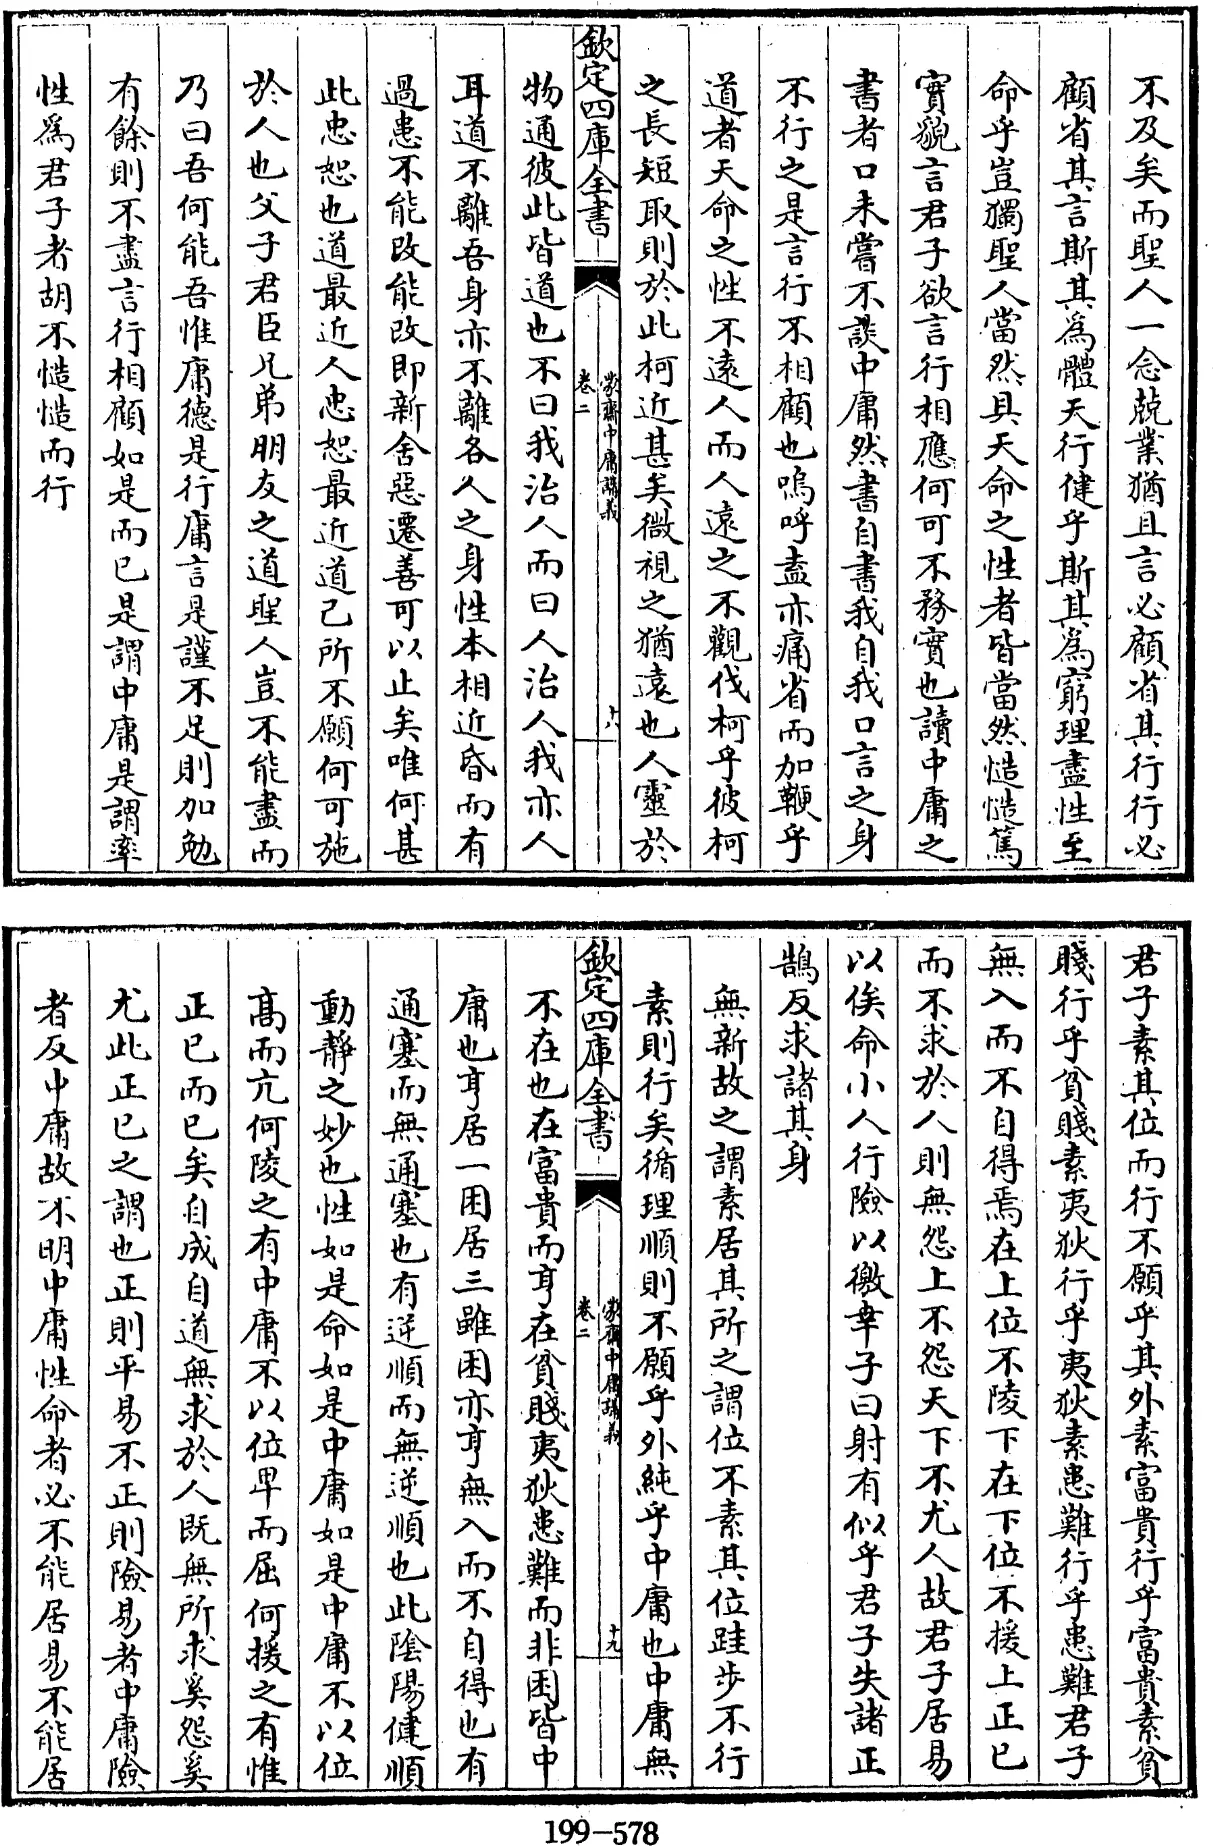 不及矣而聖人一念兢業猶且言必顧省其行行必
顧省其言斯其為體天行健乎斯其為窮理盡性至
命乎豈獨聖人當然具天命之性者皆當然慥慥篤
實貌言君子欲言行相應何可不務實也讀中庸之
書者口未嘗不談中庸然書自書我自我口言之身
不行之是言行不相顧也嗚呼盍亦痛省而加鞭乎
道者天命之性不遠人而人遠之不觀伐柯乎彼柯
之長短取則於此柯近甚矣微視之猶遠也人靈於
欽定四庫全書
蒙齋中庸講義
卷二
十八
物通彼此皆道也不曰我治人而曰人治人我亦人
耳道不離吾身亦不離各人之身性本相近昏而有
過患不能改能改即新舍惡遷善可以止矣唯何甚
此忠恕也道最近人忠恕最近道己所不願何可施
於人也父子君臣兄弟朋友之道聖人豈不能盡而
乃曰吾何能吾惟庸德是行庸言是謹不足則加勉
有餘則不盡言行相顧如是而已是謂中庸是謂率
性為君子者胡不慥慥而行
君子素其位而行不願乎其外素富貴行乎富貴素貧
賤行乎貧賤素夷狄行乎夷狄素患難行乎患難君子
無入而不自得焉在上位不陵下在下位不援上正已
而不求於人則無怨上不怨天下不尤人故君子居易
以俟命小人行險以徼幸子曰射有似乎君子失諸正
鵠反求諸其身
無新故之謂素居其所之謂位不素其位跬步不行
素則行矣循理順則不願乎外純乎中庸也中庸無
欽定四庫全書
蒙齋中庸講義
卷二
十九
不在也在富貴而亨在貧賤夷狄患難而非困皆中
庸也亨居一困居三雖困亦亨無入而不自得也有
通塞而無通塞也有逆順而無逆順也此陰陽健順
動靜之妙也性如是命如是中庸如是中庸不以位
高而亢何陵之有中庸不以位卑而屈何援之有惟
正已而已矣自成自道無求於人既無所求奚怨奚
尤此正已之謂也正則平易不正則險易者中庸險
者反中庸故不明中庸性命者必不能居易不能居
199-578